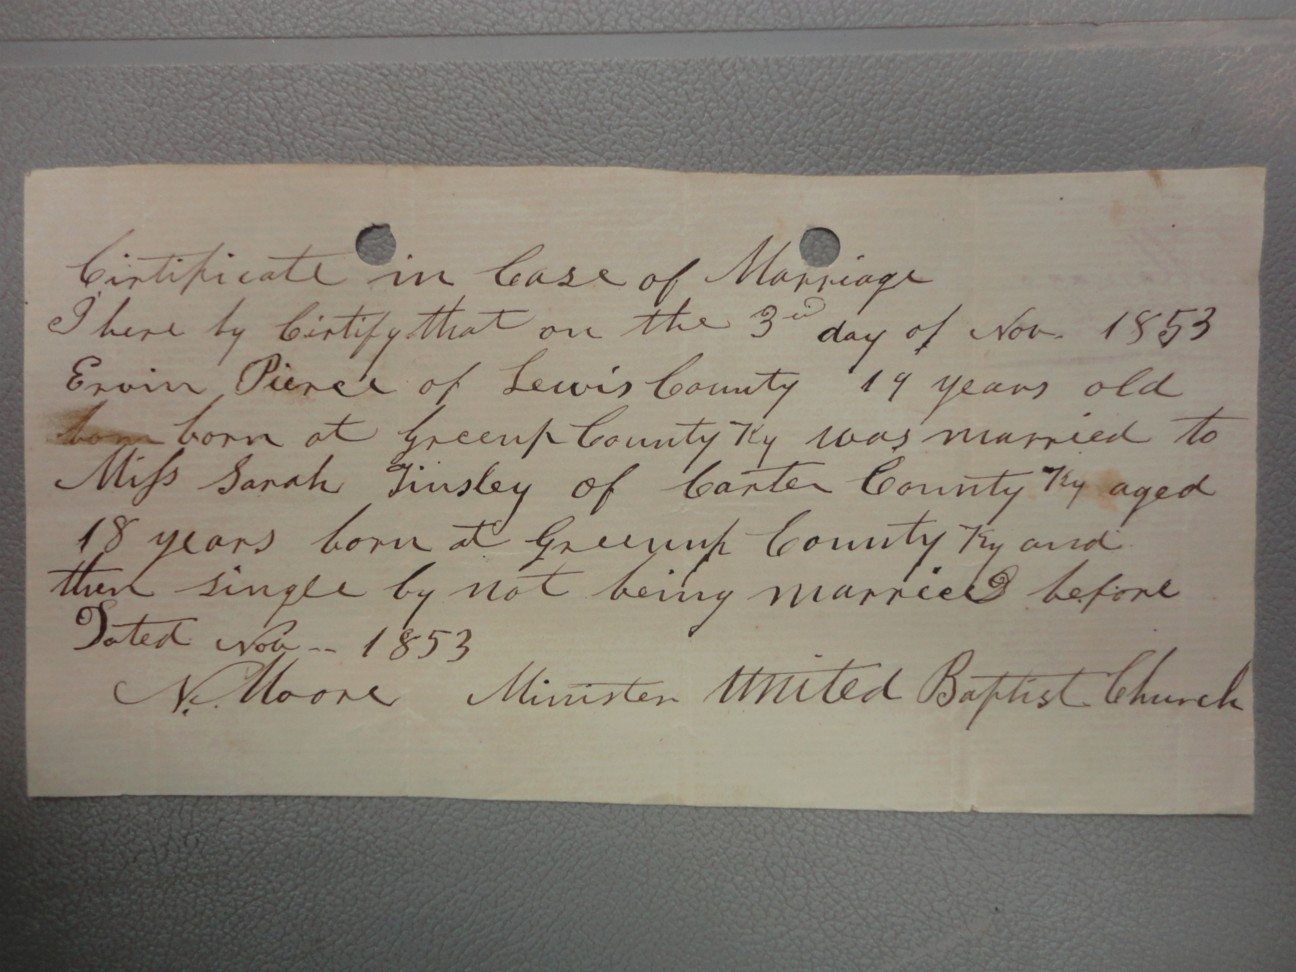 Cirtificate in Case of Marriage
I here by Cirtify that on the 3d day of Nov. 1853
Ervin Pierce of Lewis County 19 years old
born born at Greenup County Ky was married to
Miss Sarah Tinsley of Carter County Ky aged
18 years born at Greenup County Ky and
then single by not being married before
Dated Nov -- 1853
N. Moore Minister United Baptist Church